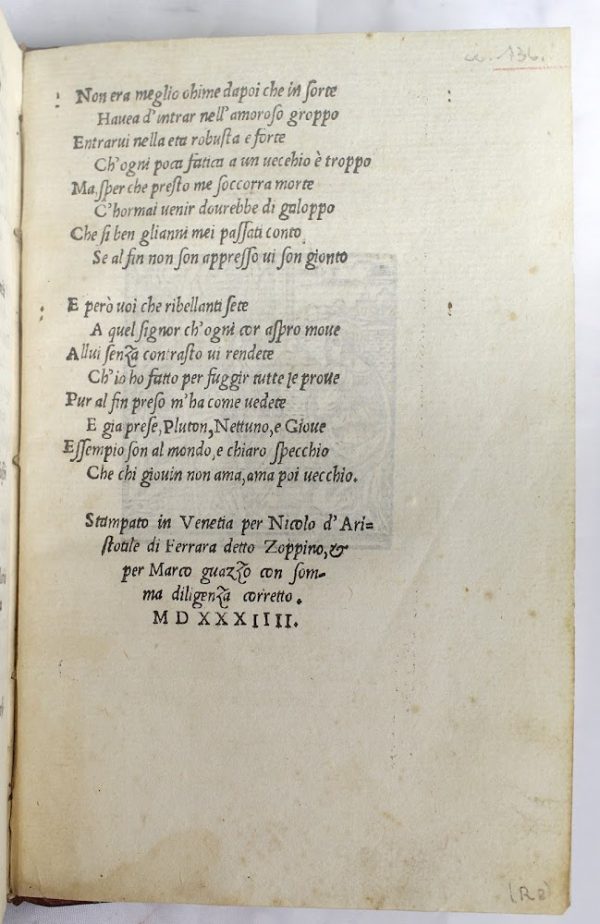 cc. 136.
Non era meglio ohime dapoi che in sorte
Hauea d'intrar nell'amoroso groppo
Entrarui nella eta robusta e forte
Ch'ogni poca fatica a un uecchio è troppo
Ma, sper che presto me soccorra morte
C'hormai uenir dourebbe di galoppo
Che si ben glianni mei passati conto
Se al fin non son appresso ui son gionto
E però uoi che ribellanti sete
A quel signor ch'ogni cor aspro moue
Allui senza contrasto ui rendete
Ch'io ho fatto per fuggir tutte le proue
Pur al fin preso m'ha come uedete
E gia prese, Pluton, Nettuno, e Gioue
Essempio son al mondo, e chiaro specchio
Che chi giouin non ama, ama poi uecchio.
Stampato in Venetia per Nicolo d'Ari=
stotile di Ferrara detto Zoppino, &
per Marco guazzo con som=
ma diligenza corretto.
M D X X X I I I I.
(R8)